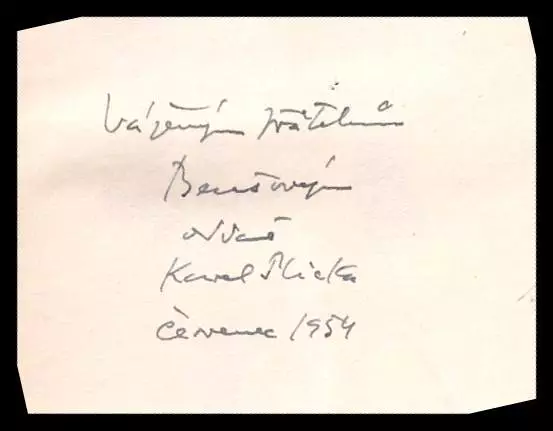 Váženým přátelům
Benešovým
oddaně
Karel Plicka
Červenec 1954